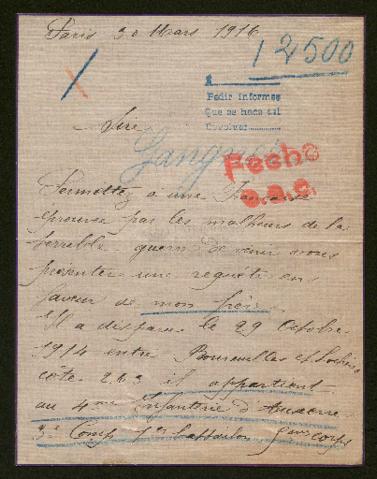 Paris 30 Mars 1916
12500
Pedir informes
Que se haga así
Devolver
Sire
Gangnes
Fecho
Permettez à une Française
éprouvée par les malheurs de la
terrible guerre de venir vous
présenter une requête en
faveur de mon frère.
Il a disparu le 29 Octobre
1914 entre et
côte 263 il appartient
au 4me Infanterie d'Auxerre
3e Comp 1er battaillon 5me corps